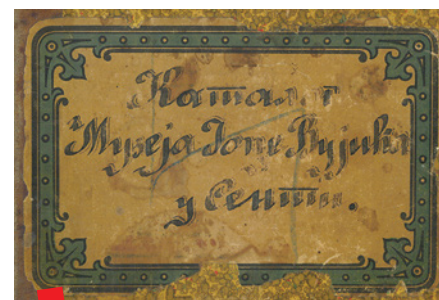 Каталог
Музеја Јоце Вујића
у Сенти.